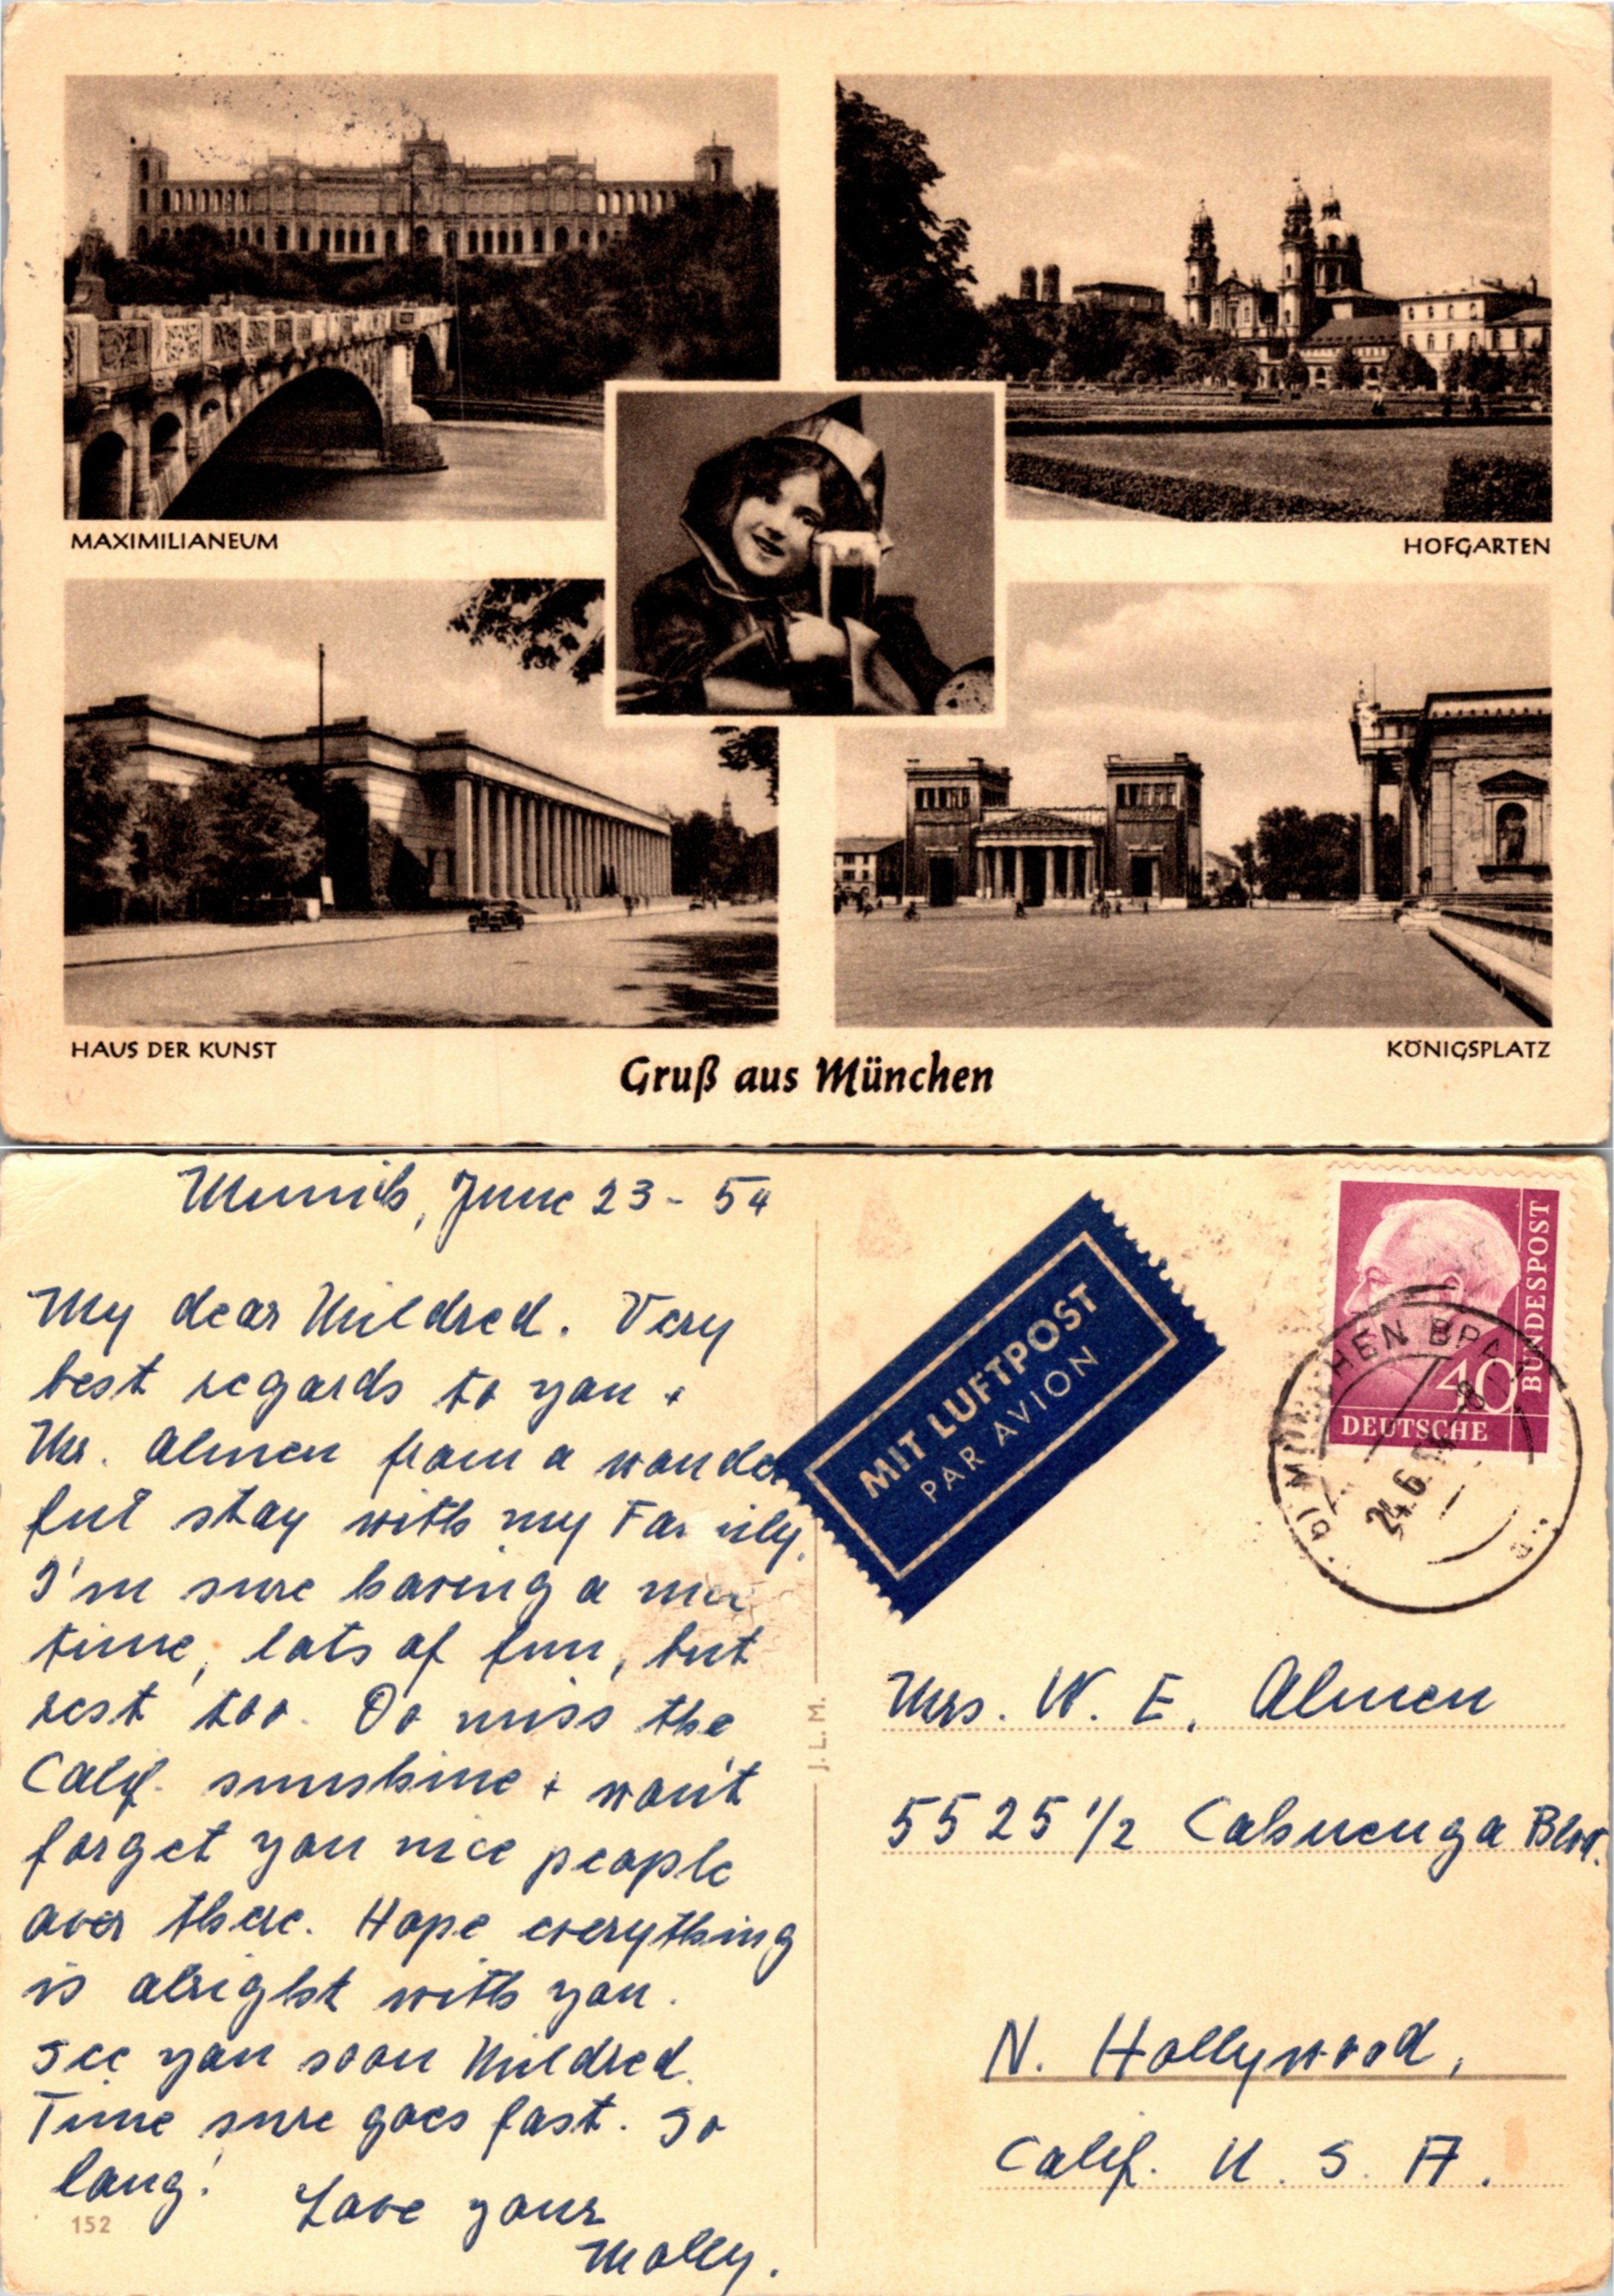 MAXIMILIANEUM
HOFGARTEN
HAUS DER KUNST
KÖNIGSPLATZ
Gruß aus München
Munich, June 23 - 54
My dear Mildred. Very
best regards to you +
Mr. Almen from a wonder
ful stay with my Family.
I'm sure having a nice
time, lots of fun, but
rest too. Do miss the
Calif. sunshine + won't
forget you nice people
over there. Hope everything
is alright with you.
See you soon Mildred.
Time sure goes fast. So
long!
Love your
Molly.
152
J.L.M.
MIT LUFTPOST
PAR AVION
BUNDESPOST
40
DEUTSCHE
MÜNCHEN
24.6.54
Mrs. W. E. Almen
5525 1/2 Cahuenga Blvd.
N. Hollywood,
Calif. U. S. A.